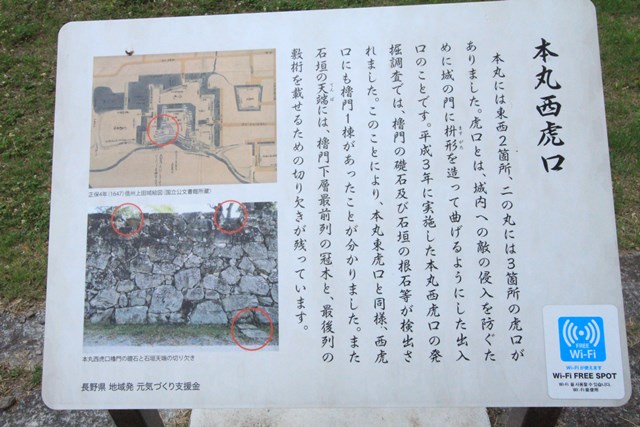 本丸西虎口
本丸には東西2箇所、二の丸には3箇所の虎口が
ありました。虎口とは、城内への敵の侵入を防ぐた
めに城の門に枡形を造って曲げるようにした出入
口のことです。平成3年に実施した本丸西虎口の発
掘調査では、櫓門の礎石及び石垣の根石等が検出さ
れました。このことにより、本丸東虎口と同様、西虎
口にも櫓門1棟があったことが分かりました。また
石垣の天端には、櫓門下層最前列の冠木と、最後列の
敷桁を載せるための切り欠きが残っています。
正保4年(1647)信州上田城絵図(国立公文書館所蔵)
本丸西虎口櫓門の礎石と石垣天端の切り欠き
長野県 地域発 元気づくり支援金
FREE
Wi-Fi
Wi-Fiが使えます
Wi-Fi FREE SPOT